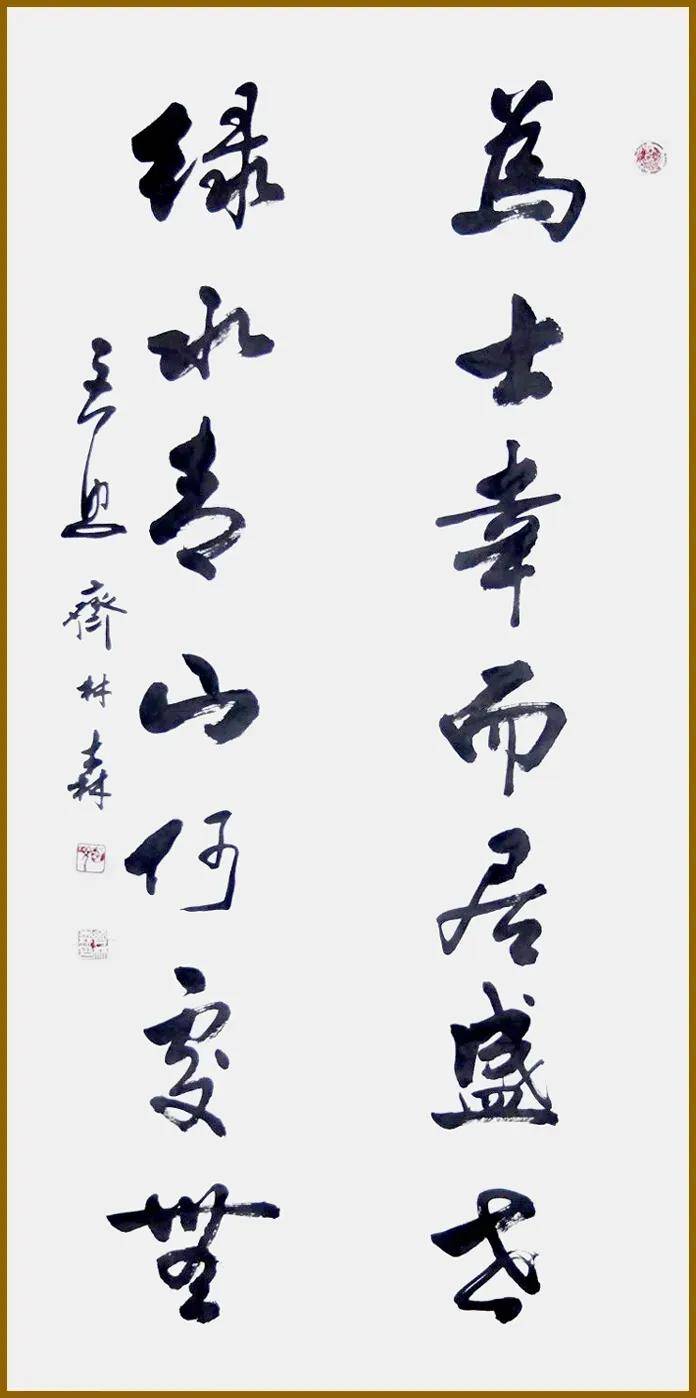 為士幸而居盛世
绿水青山何處無
齊林森